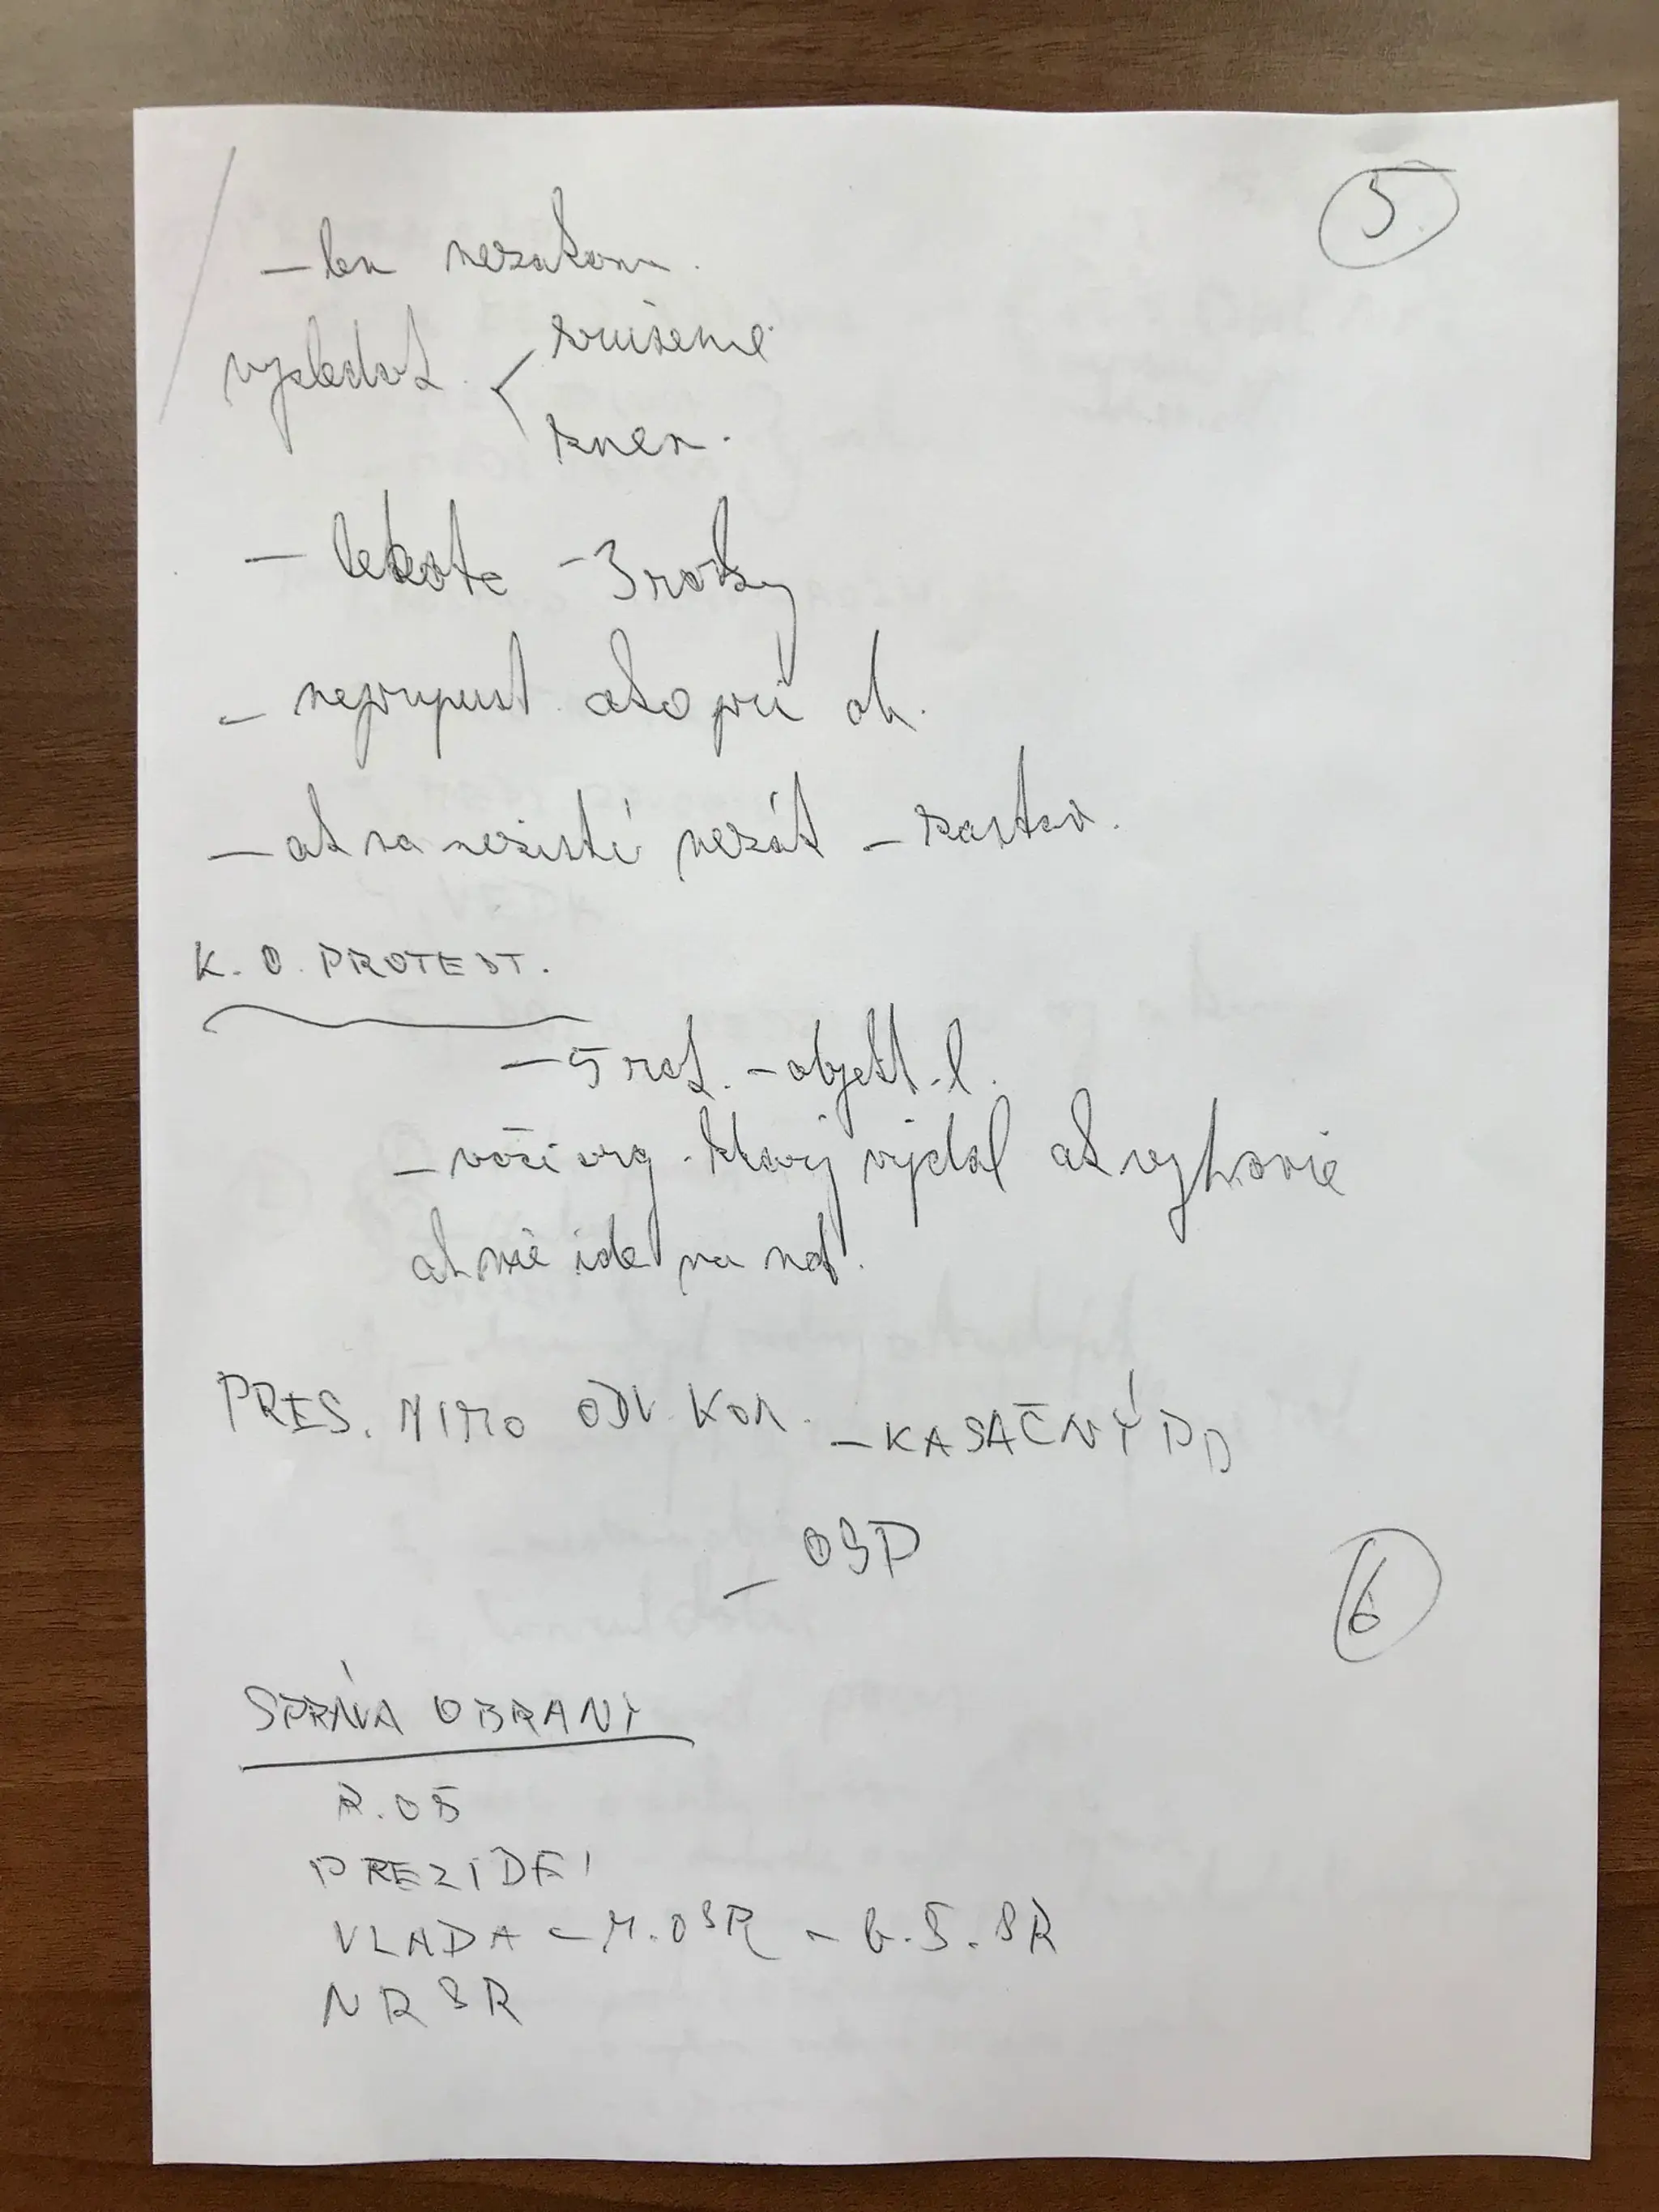 5.
- len nezákonn.
zrušenie
výsledok <
zmen.
- lehota - 3 roky
- neprípust. ako pri ob.
- ak sa nezistí nezák - zastav.
K. O. PROTEST.
- 5 rok. - objekt. l.
- voči org. ktorý vydal ak vyhovie
ak nie ide na nad.
PRES. MIMO ODV. KON. - KASAČNÝ PD
- OSP
6
SPRÁVA OBRANY
P. OS
PREZIDE
VLADA - M.OSR - G.Š. SR
NR SR